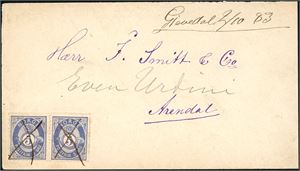 Grevedal 2/10 83
Herr F. Smitt & Co
Even Urdini
Arendal
5 5